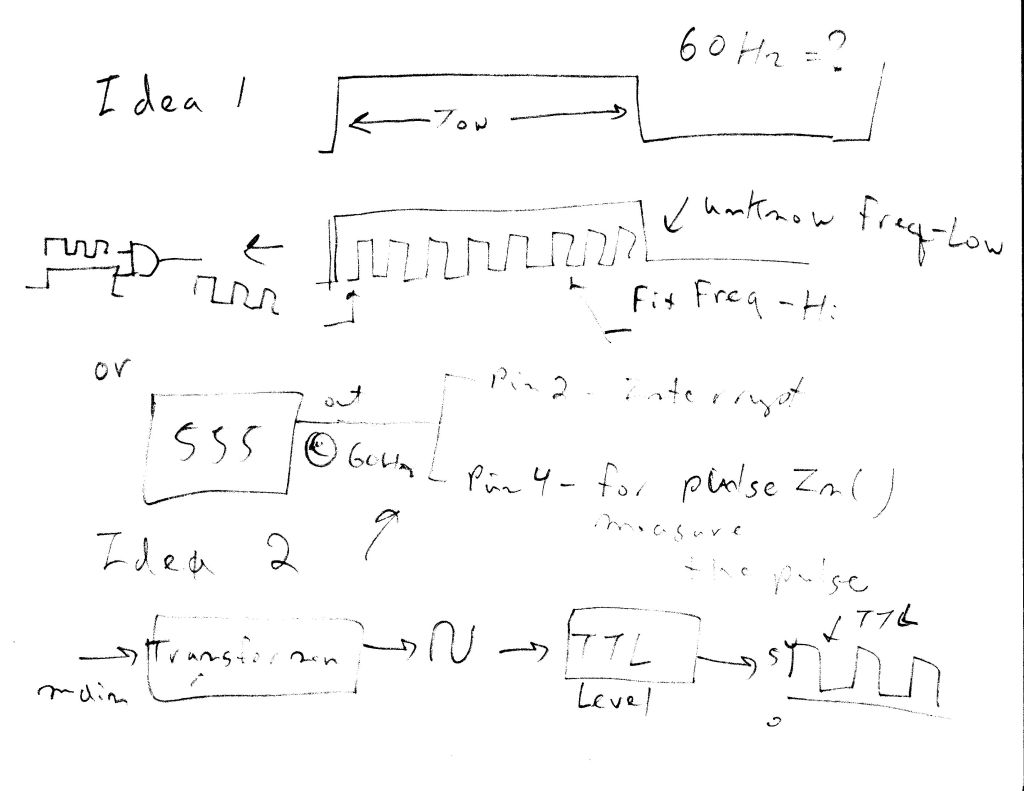 60Hz = ?
Idea 1
TON
unknow Freq-Low
Fix Freq - Hi
or
555
out
60Hz
Pin 2 - Interrupt
Pin 4 - for pulse In()
measure
the pulse
Idea 2
TTL
main
Transformer
TTL
Level
5V
0